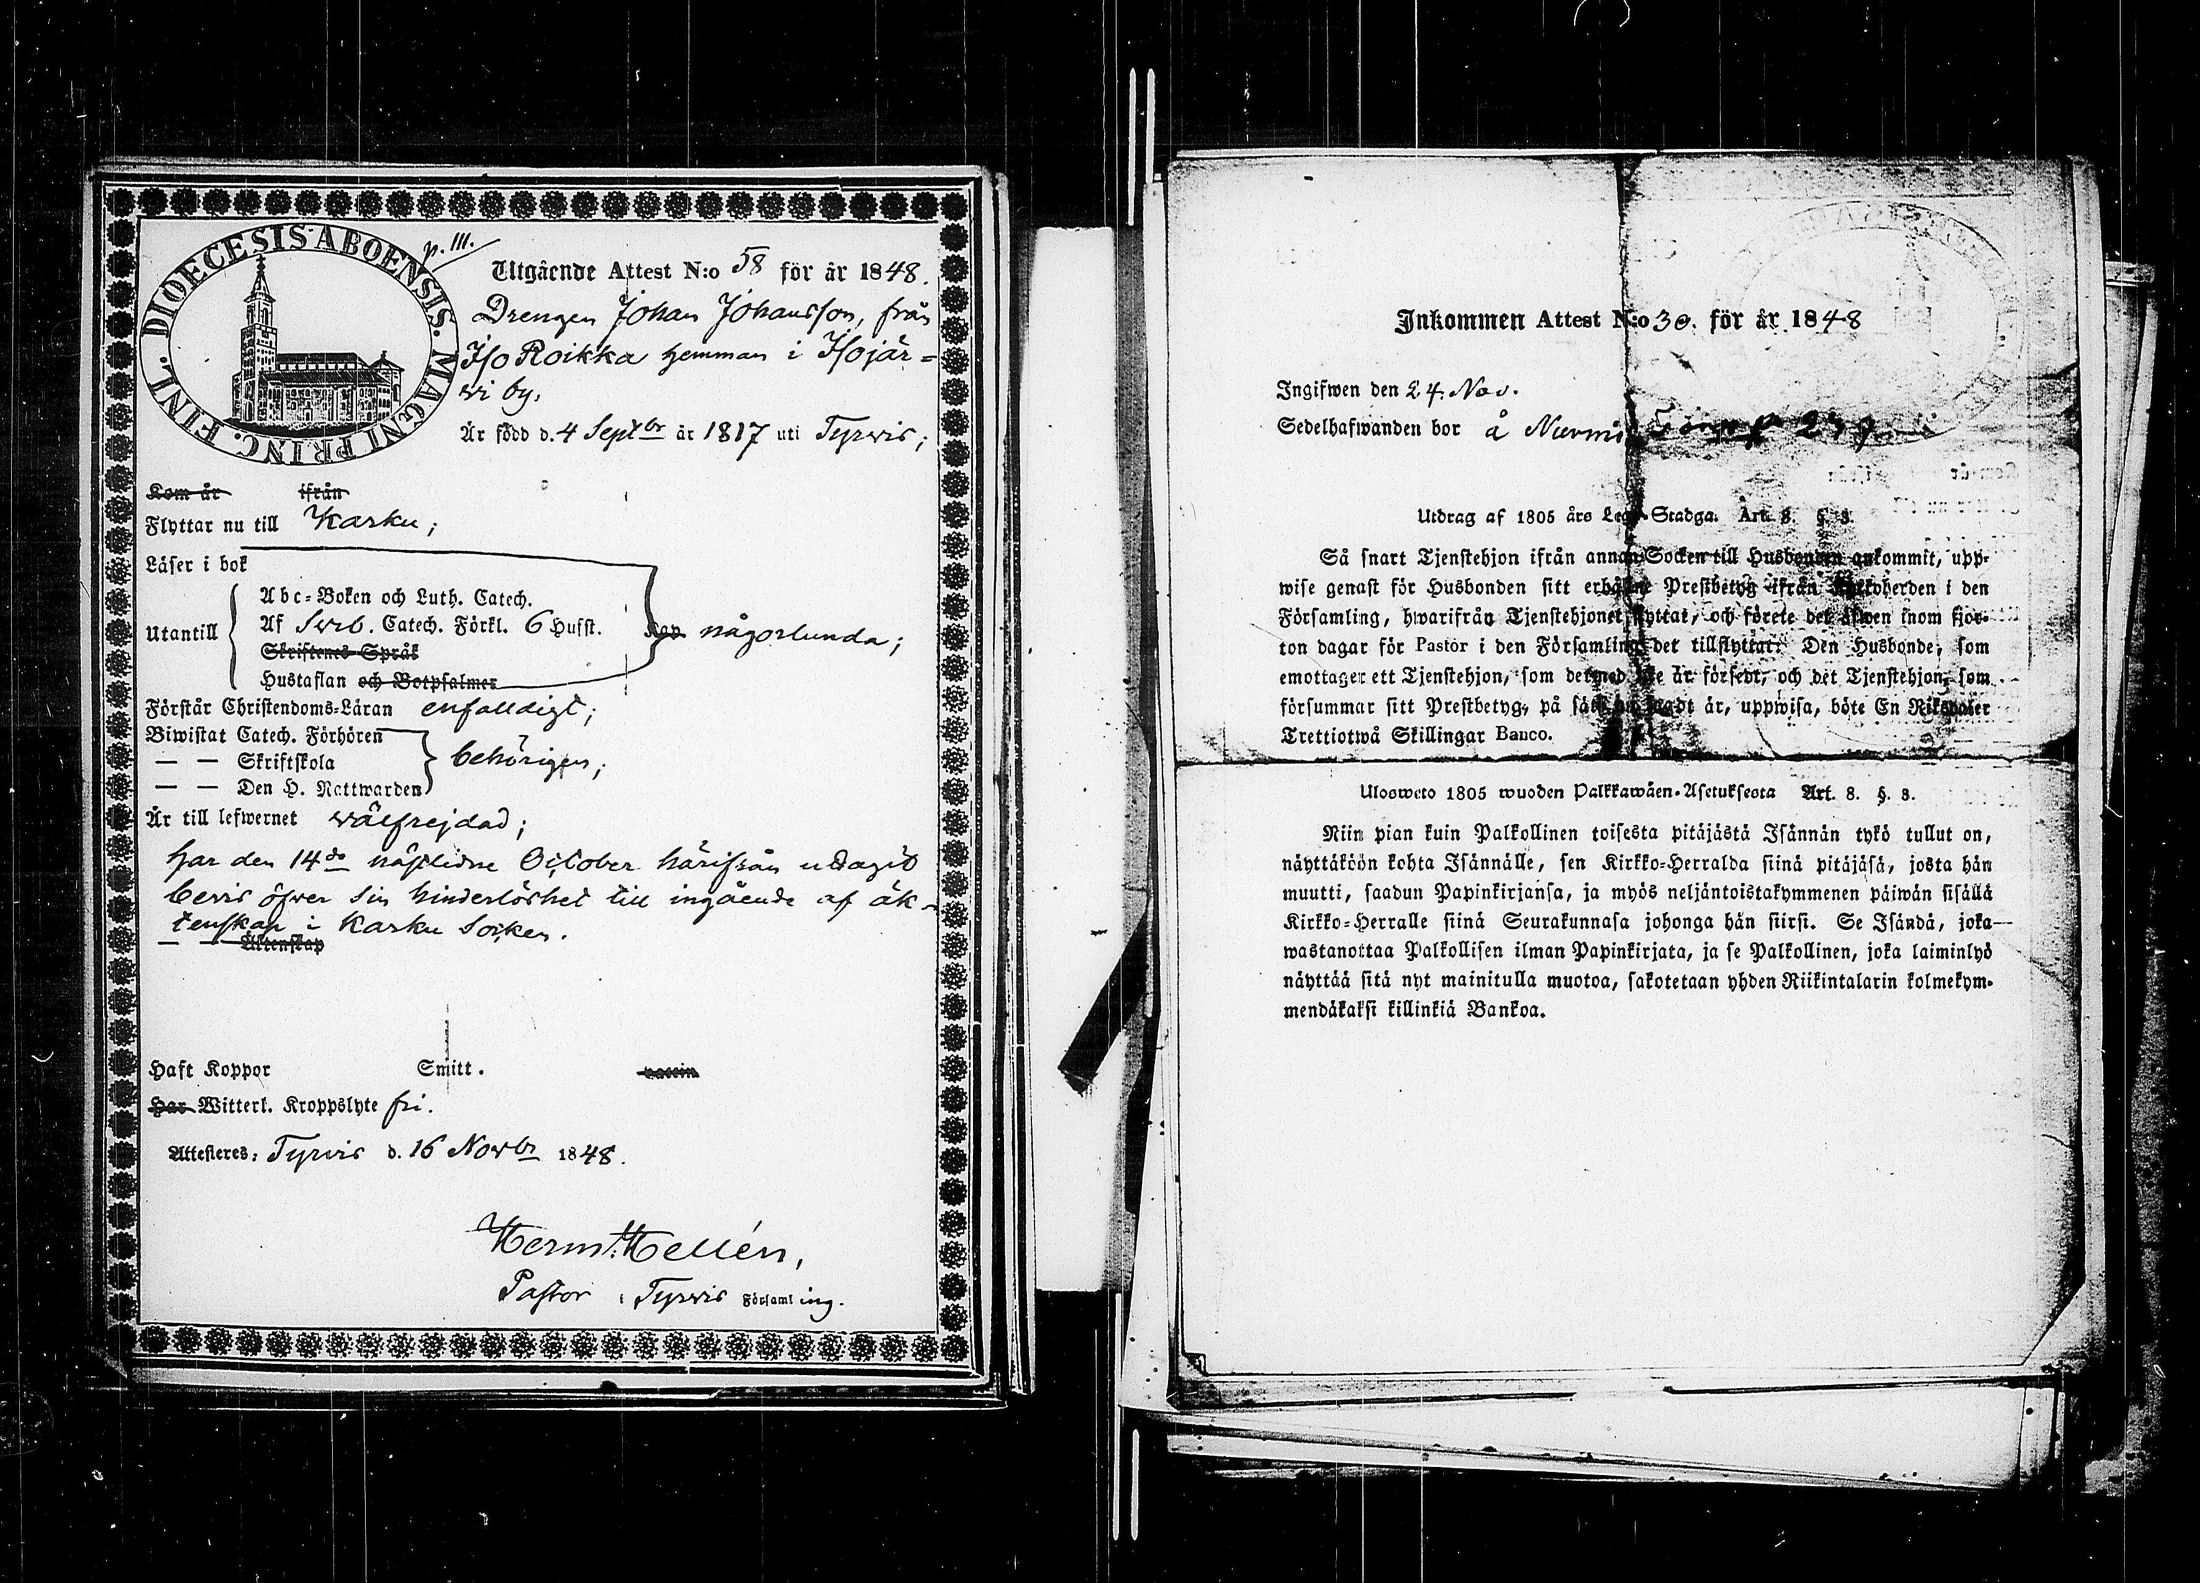 DIOECESIS ABOENSIS. MAGNI PRINC. FINL.
p. 111.
Utgående Attest N:o 58 för år 1848.
Drengen Johan Johansson, från
Iso Roikka hemman i Isojär=
wi by,
Är född d. 4 Septbr år 1817 uti Tyrvis;
Kom år ifrån
Flyttar nu till Karku;
Läser i bok
Utantill
Abc-Boken och Luth. Catech.
Af Svrb. Catech. Förkl. 6 Hufst. Kap. någorlunda;
Skriftenes Språk
Hustaflan och Botpsalmer
Förstår Christendoms-Läran enfalldigt;
Biwistat Catech. Förhören
— — Skriftskola behörigen;
— — Den H. Nattwarden
Är till lefwernet wälfrejdad;
har den 14de nästlidne October härifrån uttagit
bevis öfver sin hinderlöshet till ingående af äk=
tenskap i Karku Socken.
— — Äktenskap
Haft Koppor Smitt. vaccin
Har Witterl. Kroppslyte fri.
Attesteres: Tyrvis d. 16 Novbr 1848.
Herm. Hellén,
Pastor i Tyrvis Församling.
Inkommen Attest N:o 30. för år 1848
Ingifwen den 24. Nov.
Sedelhafwanden bor å Nurmi
Utdrag af 1805 års Lego-Stadga. Art. 8. §. 3.
Så snart Tjenstehjon ifrån annan Socken till Husbonden ankommit, upp-
wise genast för Husbonden sitt erhållne Prestbetyg ifrån Kyrkoherden i den
Församling, hwarifrån Tjenstehjonet flyttat, och förete det äfwen inom fjor-
ton dagar för Pastor i den Församling det tillflyttat. Den Husbonde, som
emottager ett Tjenstehjon, som dermed icke är försedt, och det Tjenstehjon, som
försummar sitt Prestbetyg, på sätt nu sagdt är, uppwisa, böte En Riksdaler
Trettiotwå Skillingar Banco.
Ulosweto 1805 wuoden Palkkawäen-Asetuksesta Art. 8. §. 3.
Niin pian kuin Palkollinen toisesta pitäjästä Isännän tykö tullut on,
näyttäköön kohta Isännälle, sen Kirkko-Herralda siinä pitäjäsä, josta hän
muutti, saadun Papinkirjansa, ja myös neljäntoistakymmenen päiwän sisällä
Kirkko-Herralle siinä Seurakunnasa johonga hän siirsi. Se Isändä, joka
wastanottaa Palkollisen ilman Papinkirjata, ja se Palkollinen, joka laiminlyö
näyttää sitä nyt mainitulla muotoa, sakotetaan yhden Riikintalarin kolmekym-
mendäkaksi killinkiä Bankoa.